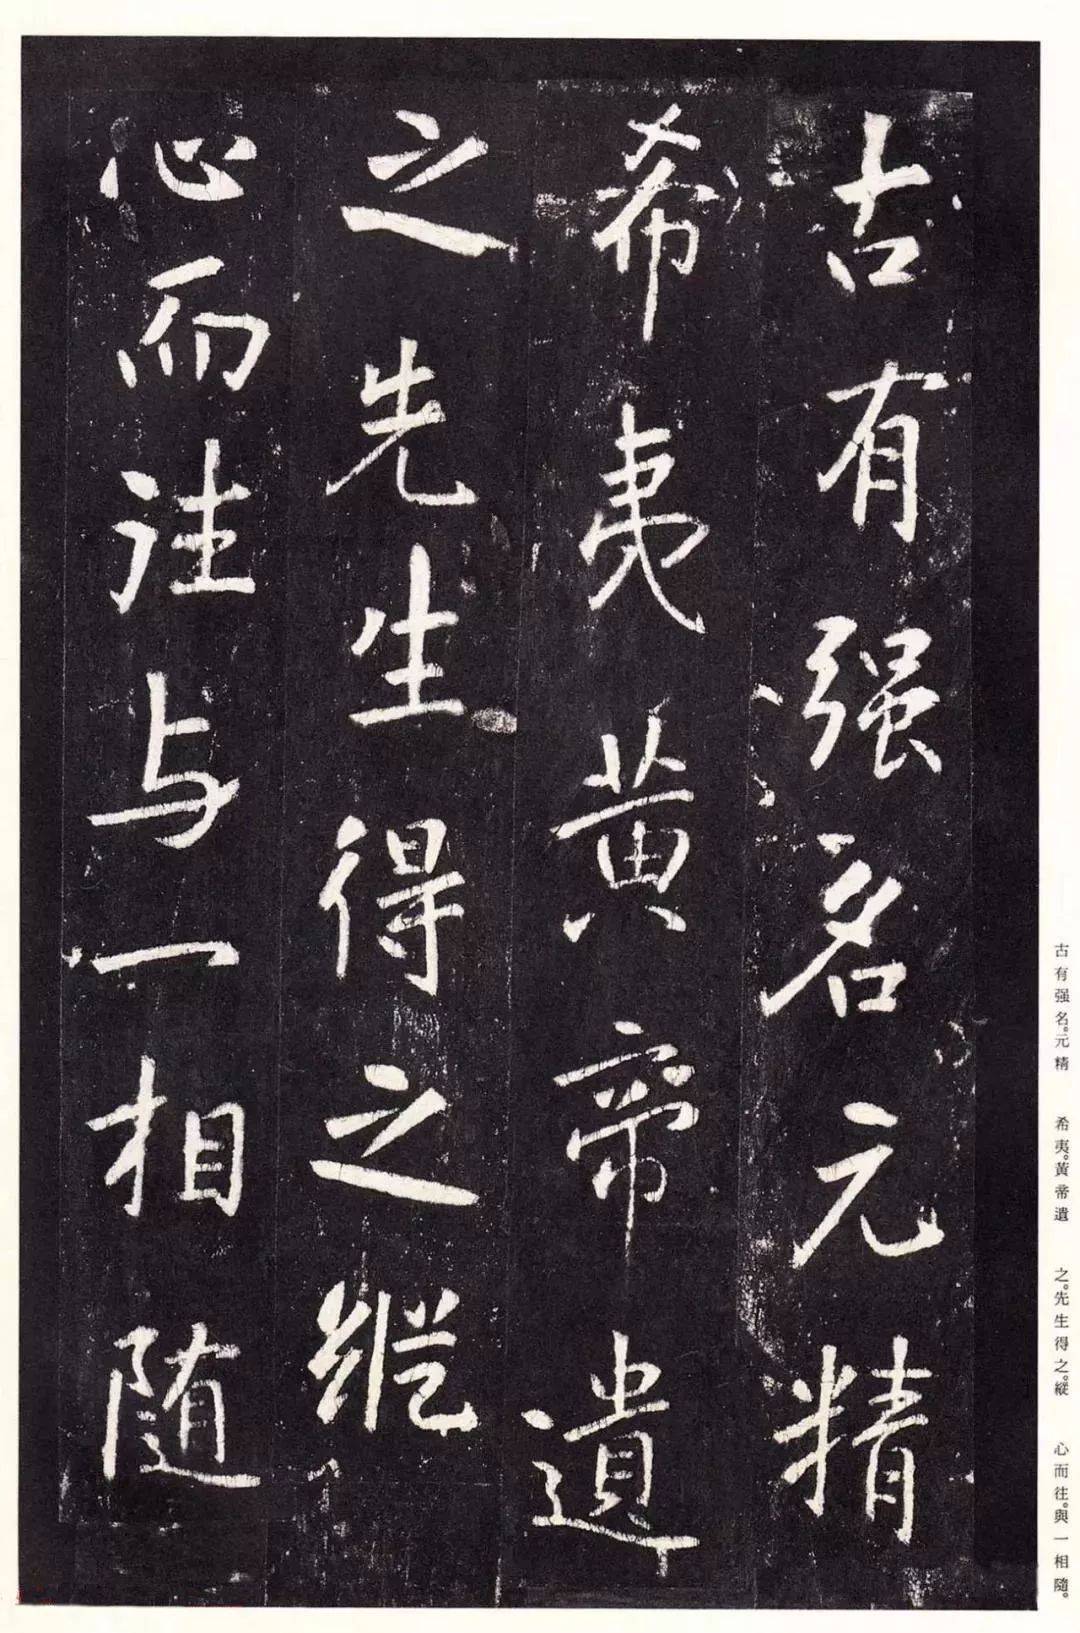 古有强名元精
希夷黄帝遺
之先生得之縱
心而往与一相随
古有强名。元精
希夷。黃帝遺
之。先生得之。縱
心而往。與一相隨。